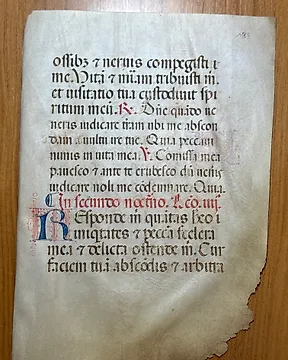 ossibꝫ ⁊ neruis compegisti ī
me. Vitā ⁊ mīam tribuisti m̄.
et uisitatio tua custodiuit spi
ritum meū. ℟. Dn̄e quādo ue
neris iudicare t̄ram ubi me abscon
dam a uultu ire tue. Quia peccaui
nimis in uita mea. ℣. Comissa mea
pauesco ⁊ ante te erubesco dū ueneris
iudicare noli me cōdempnare. Quia.
In secundo noct̄no. Lco. iiij.
Responde m̄ quātas hēo i
niquitates ⁊ peccā scelera
mea ⁊ delicta ostende m̄. Cur
faciem tuā abscōdis ⁊ arbitra